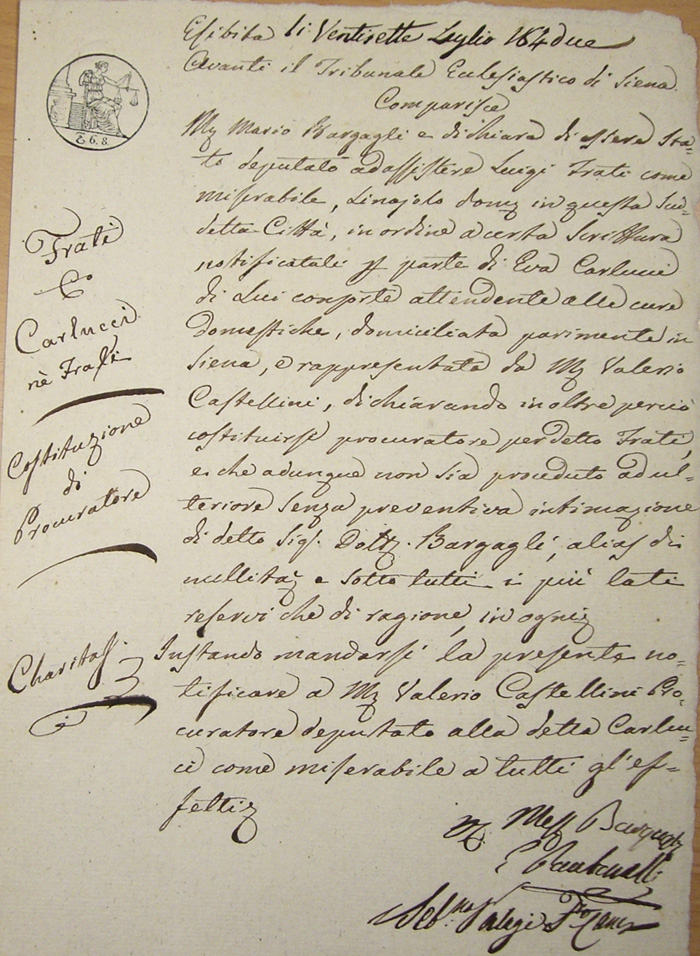 Esibita li Ventisette Luglio 184due
Avanti il Tribunale Eclesiastico di Siena
Comparisce
Mr Mario Bargagli e dichiara di essere sta=
to deputato ad assistere Luigi Frati come
miserabile, Linajolo domo in questa Sud=
detta Città, in ordine a certa Scrittura
notificatali p parte di Eva Carlucci
di Lui consorte attendente alle cure
domestiche, domiciliata parimente in
Siena, e rappresentata da Mr Valerio
Castellini, dichiarando inoltre perciò
costituirsi procuratore per detto Frati,
e che adunque non sia proceduto ad ul=
teriore senza preventiva intimazione
di detto Sig. Dott. Bargagli, alias di
nullità e sotto tutti i più lati
reservi che di ragione, in ogni
Instando mandarsi la presente no=
tificare a Mr Valerio Castellini Pro=
curatore deputato alla detta Carluc=
ci come miserabile a tutti gl'ef=
fetti
Mess Bargagli
Seb.no
Frati
Co
Carlucci
nè Frati
Costituzione
di
Procuratore
Charitas.
C. 6. 8.